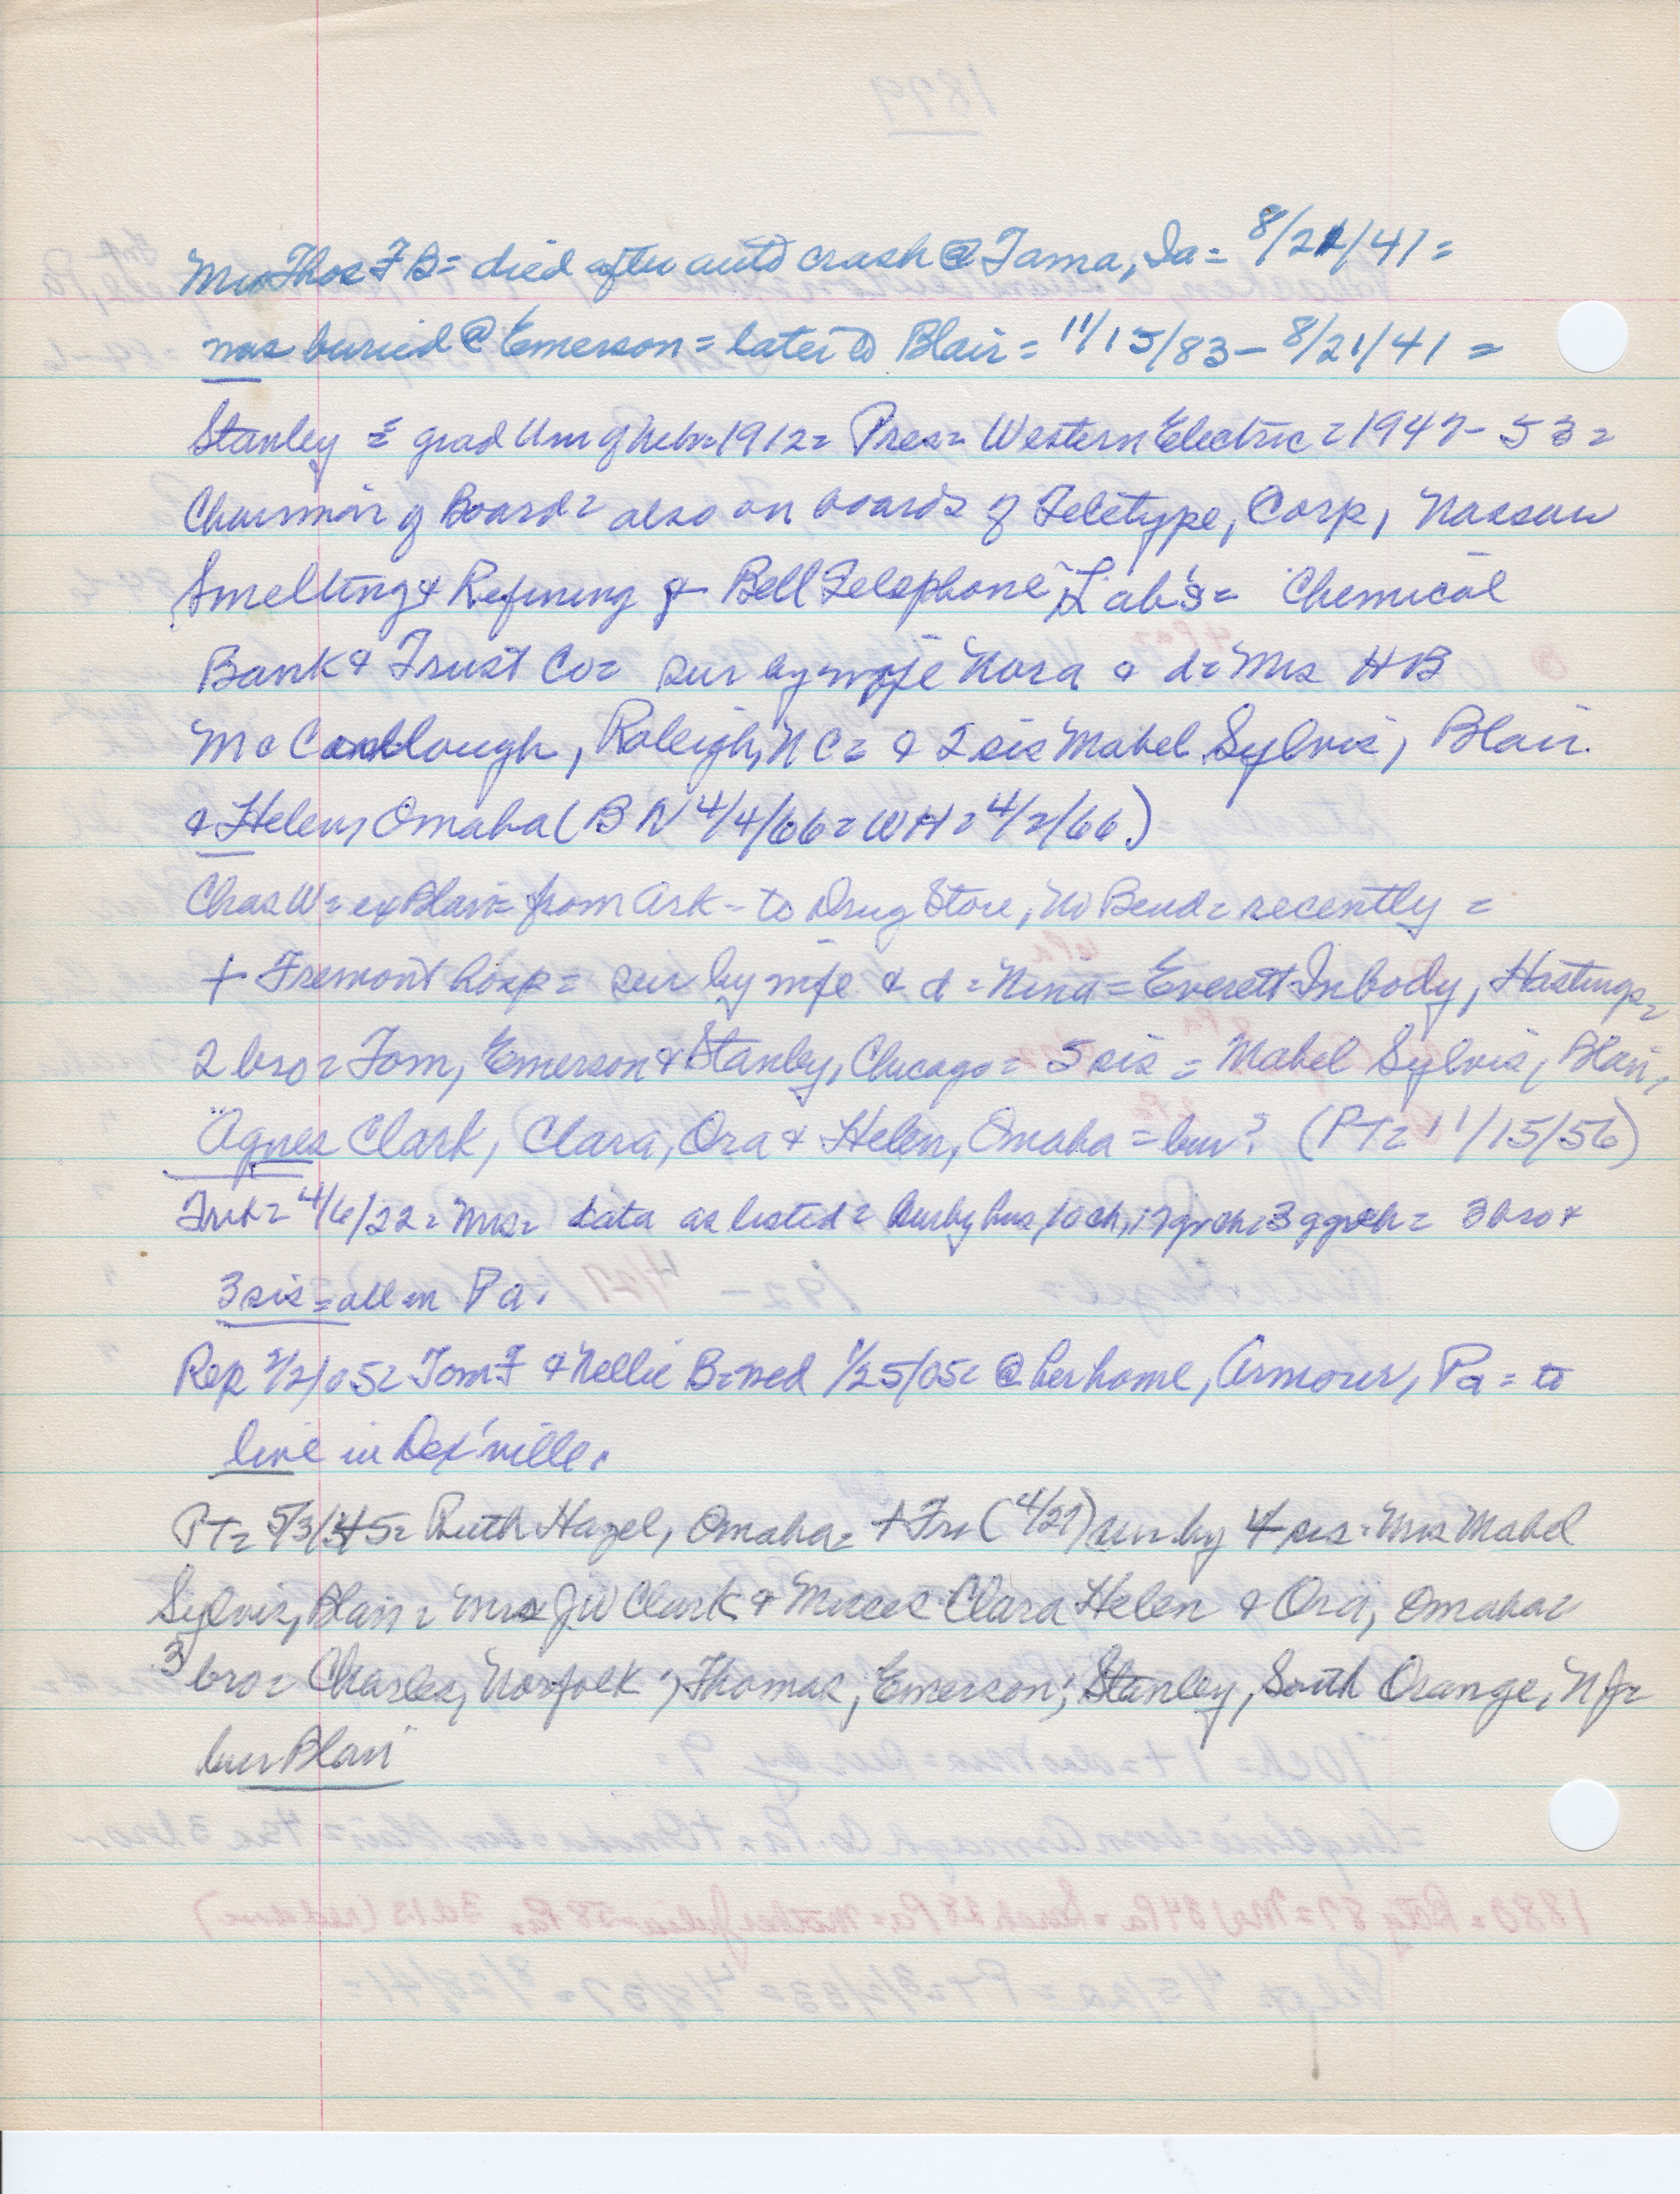 Mrs Thos F B= died after auto crash @ Tama, Ia= 8/21/41=
was buried @ Emerson= later to Blair= 11/15/83– 8/21/41 =
Stanley = grad Uni of Neb=1912= Pres= Western Electric=1947–53=
Chairman of Board= also on boards of Teletype, Corp, Nassau
Smelting & Refining & Bell Telephone Lab's= Chemical
Bank & Trust Co= sur by wife Nora & d= Mrs H B
McCullough, Raleigh, NC= & 2 sis Mabel Sylvis, Blair
& Helen, Omaha (B N 4/4/66= WH= 4/2/66.)
Chas W= ex Blair= from Ark– to Drug Store, No Bend= recently =
+ Fremont hosp= sur by wife & d= Nina= Everett Inbody, Hastings=
2 bro= Tom, Emerson & Stanley, Chicago= 5 sis = Mabel Sylvis, Blair,
Agnes Clark, Clara, Ora & Helen, Omaha= bur? (PT= 11/15/56)
4/6/22= Mrs= data as listed= sur by hus, 10 ch, 17 grch, 3 ggrch= 3 bro &
3 sis= all in Pa.
Rep 2/2/05= Tom F & Nellie B= wed 1/25/05= @ her home, Armour, Pa= to
live in Dex'ville.
PT= 5/3/45= Ruth Hazel, Omaha= + Fri (4/27) sur by 4 sis= Mrs Mabel
Sylvis, Blair= Mrs J W Clark & Misses Clara Helen & Ora, Omaha=
3 bro= Charles, Norfolk; Thomas, Emerson; Stanley, South Orange, NJ=
bur Blair